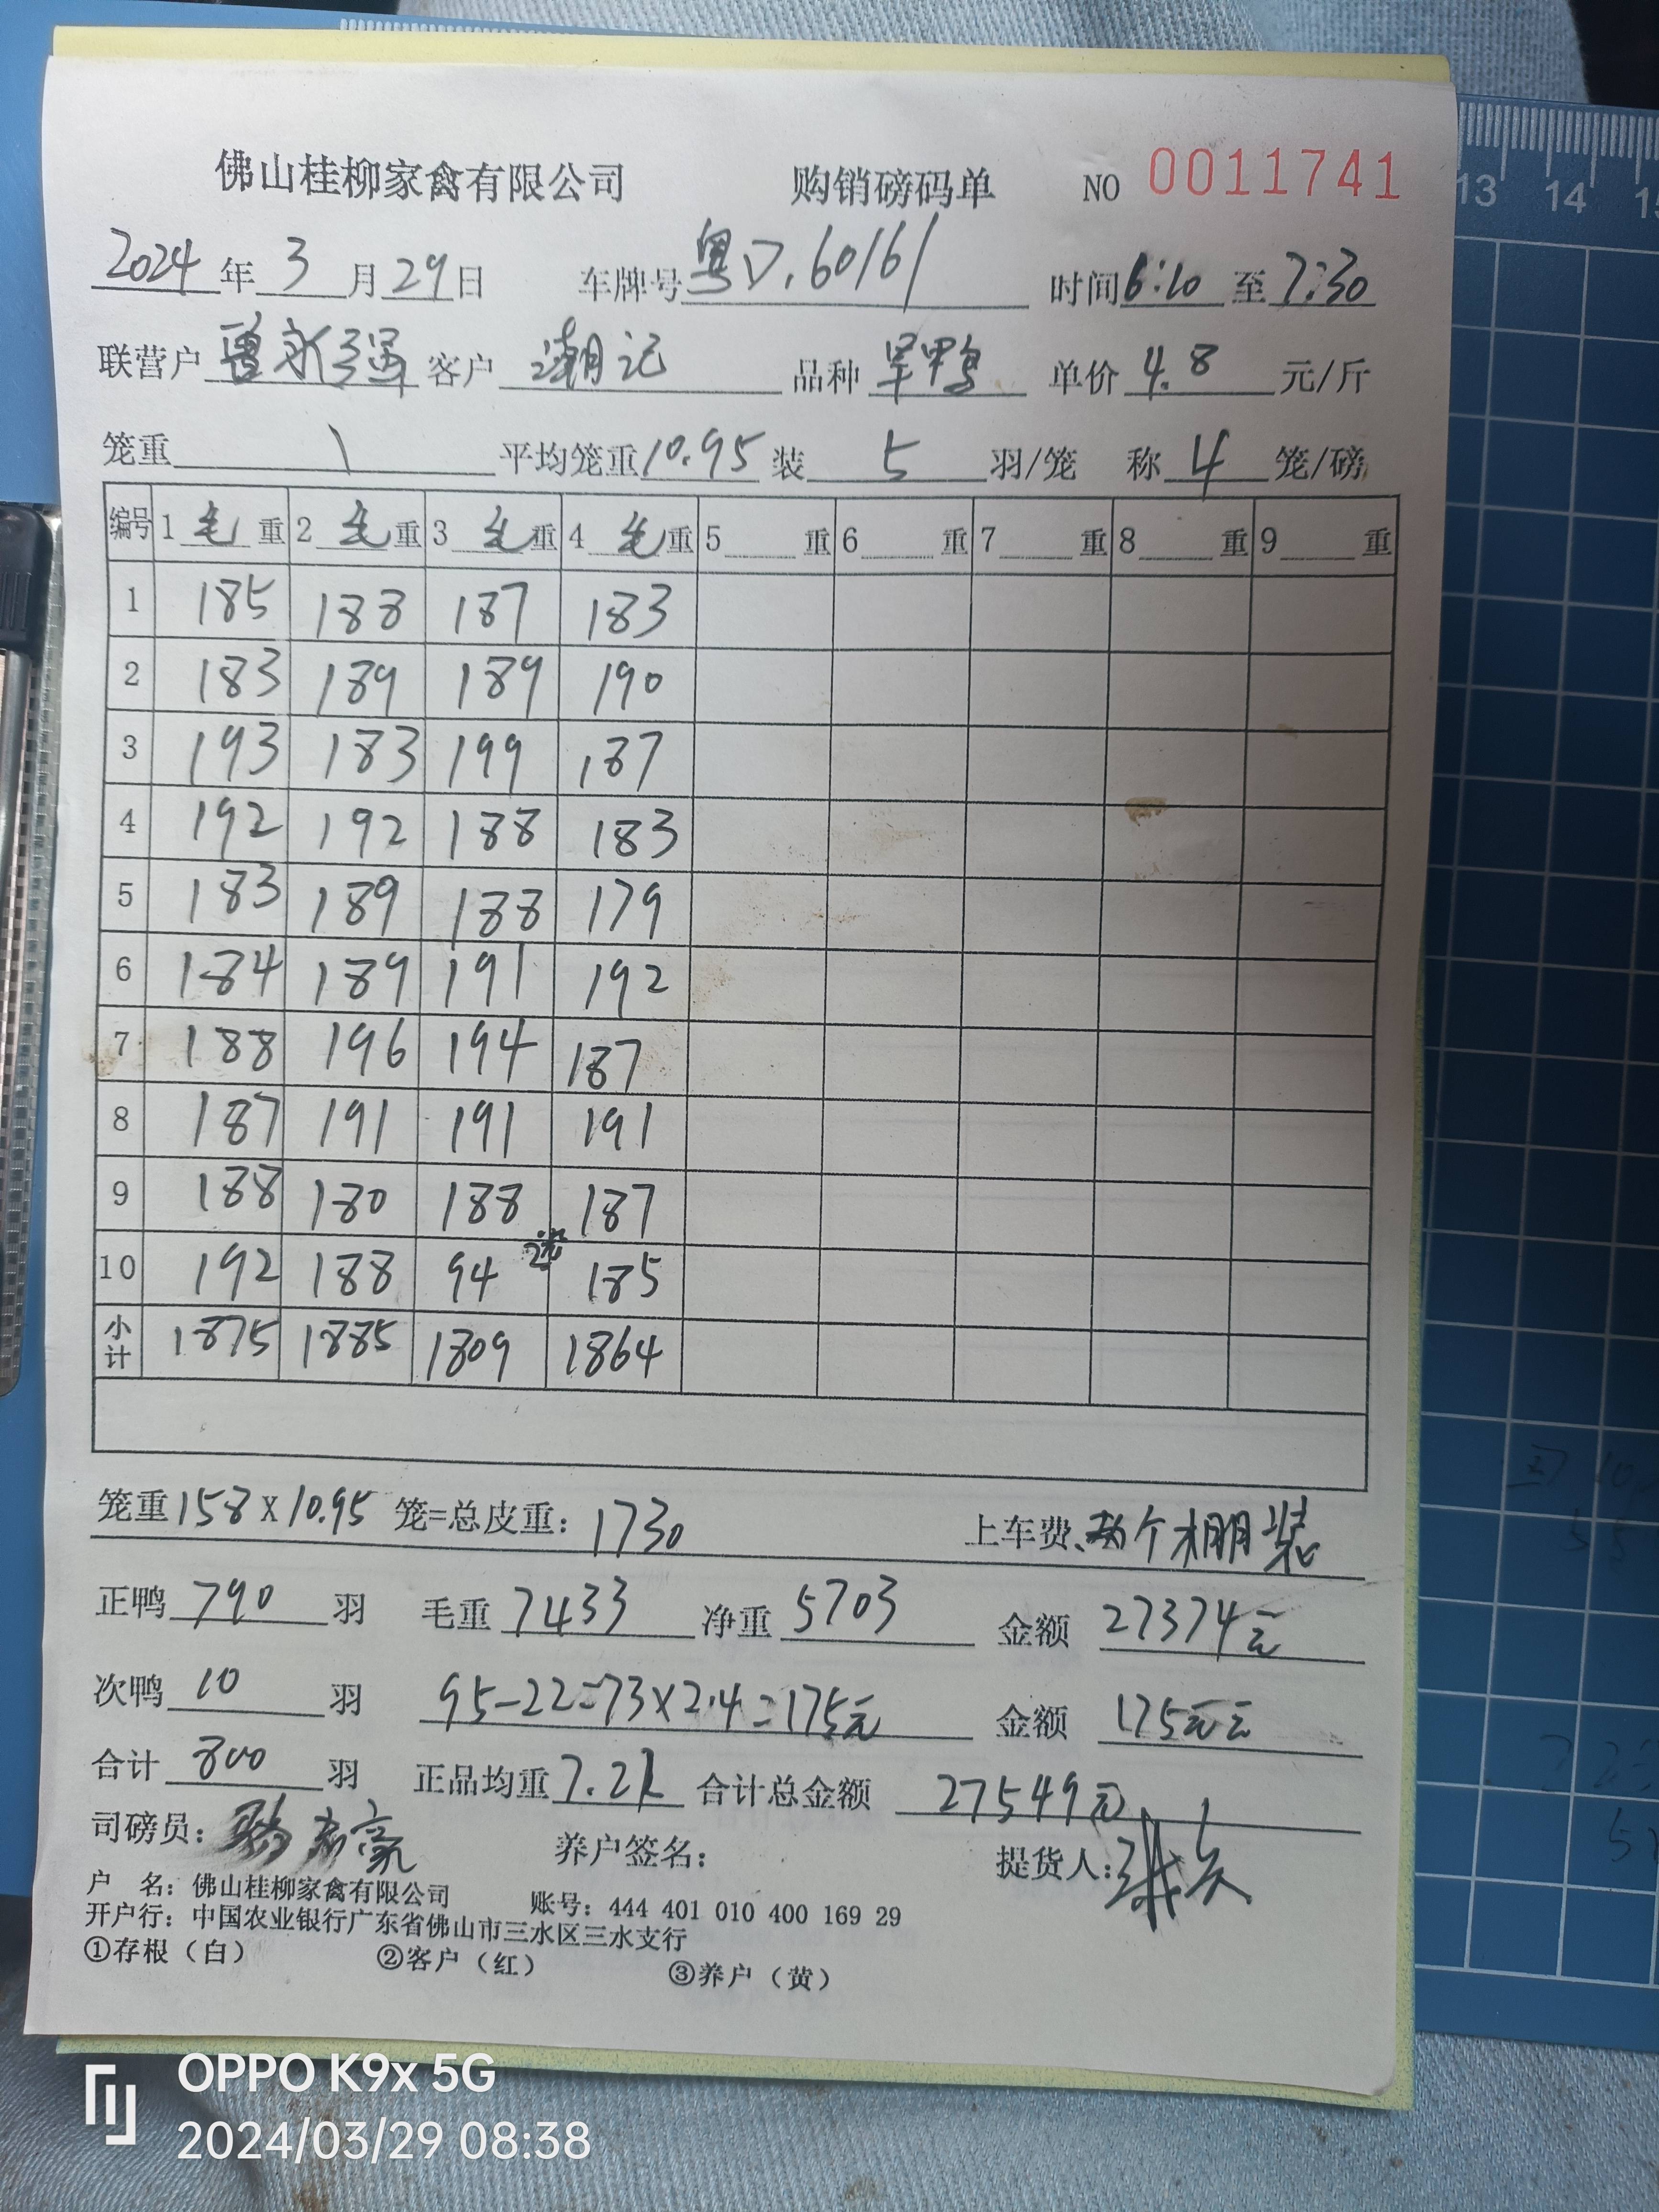 佛山桂柳家禽有限公司 购销磅码单 NO 0011741
2024年3月29日 车牌号粤D.60161 时间6:10至7:30
联营户曾永强 客户 潮记 品种 旱鸭 单价4.8元/斤
笼重 \ 平均笼重10.95装 5 羽/笼 称 4 笼/磅
编号 1毛重 2毛重 3毛重 4毛重 5 重 6 重 7 重 8 重 9 重
1 185 188 187 183
2 183 189 189 190
3 193 183 199 187
4 192 192 188 183
5 183 189 188 179
6 184 189 191 192
7 188 196 194 187
8 187 191 191 191
9 188 180 188 187
10 192 188 94 2笼 185
小计 1875 1885 1809 1864
笼重158X10.95 笼=总皮重:1730 上车费、两个棚装
正鸭 790 羽 毛重 7433 净重 5703 金额 27374元
次鸭 10 羽 95-22=73×2.4=175元 金额 175元元
合计 800 羽 正品均重7.21 合计总金额 27549元
司磅员: 养户签名: 提货人:
户 名:佛山桂柳家禽有限公司 账号:444 401 010 400 169 29
开户行:中国农业银行广东省佛山市三水区三水支行
①存根(白) ②客户(红) ③养户(黄)
13 14 15
OPPO K9x 5G
2024/03/29 08:38